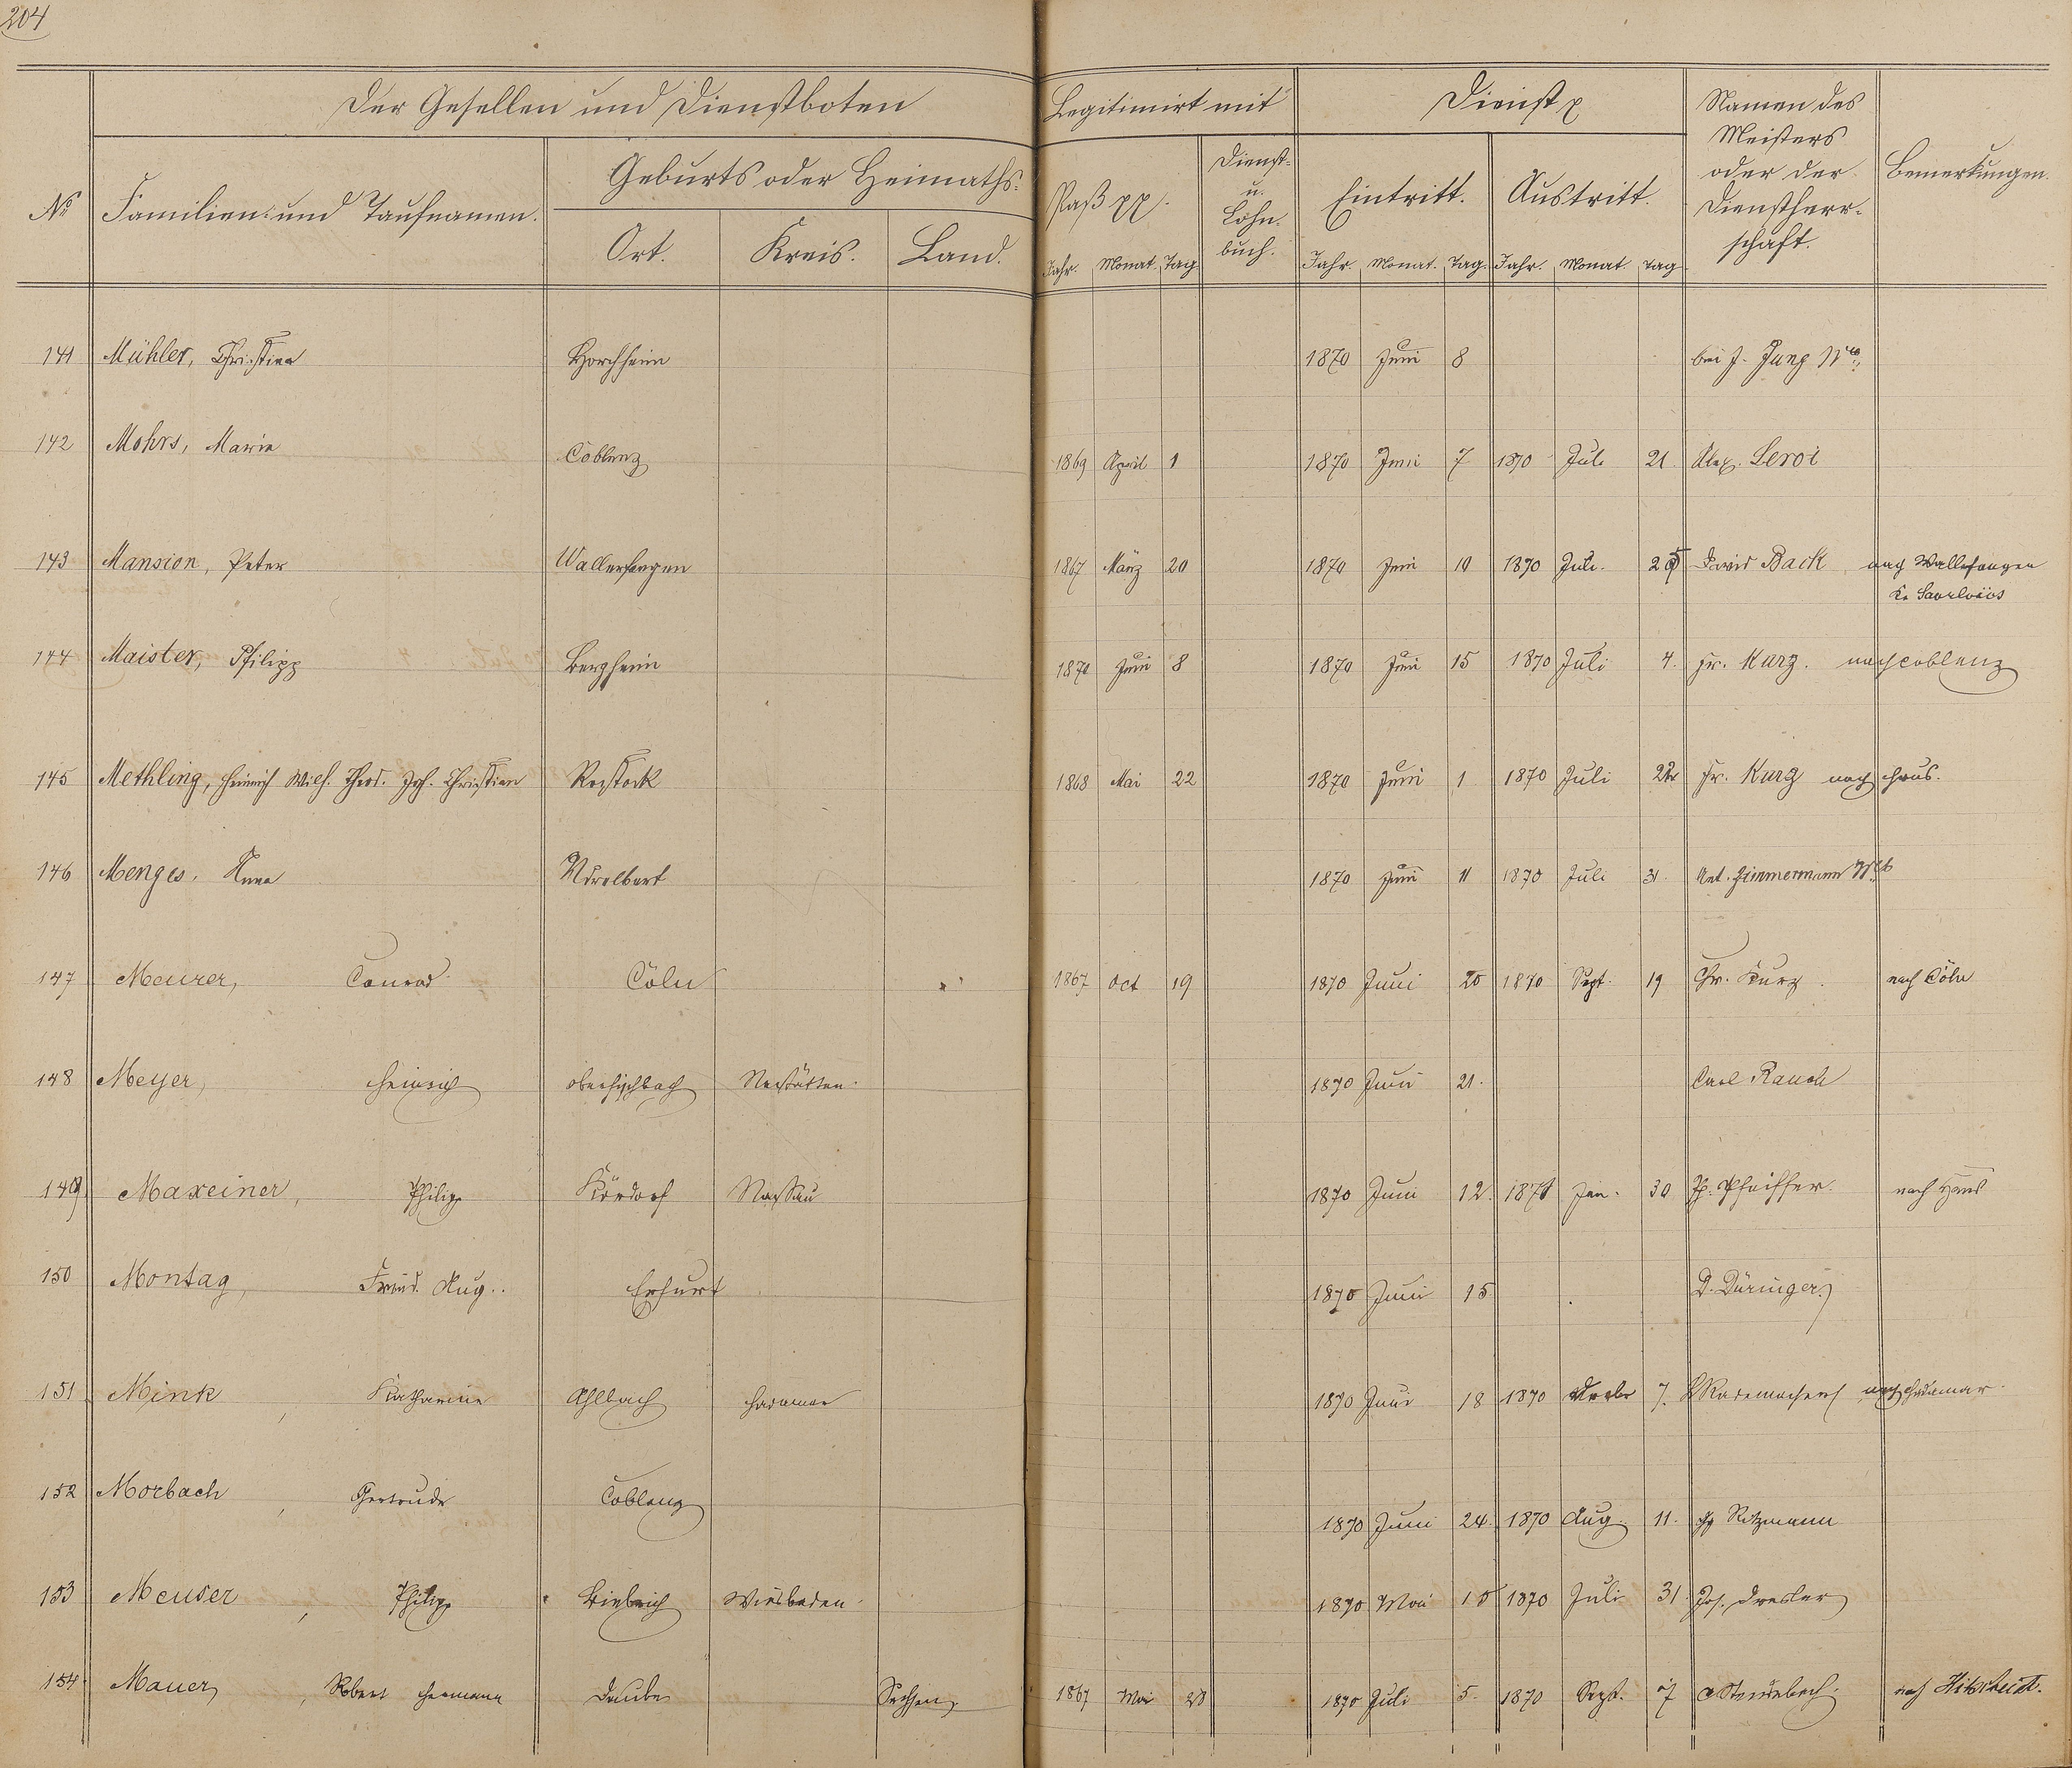 204
Der Gesellen und Dienstboten
Legitimirt mit
Dienst
Namen des Meisters oder der Dienstherrschaft.
Bemerkungen.
No
Familien- und Taufnamen.
Geburts oder Heimaths-
Ort. Kreis. Land.
Paß pp.
Dienst- u. Lohn- buch.
Eintritt. Austritt.
Jahr. Monat. Tag. Jahr. Monat. Tag. Jahr. Monat. Tag
141 Mühler, Christian Horchheim 1870 Juni 8 bei J. Jung Wwe
142 Mohrs, Maria Coblenz 1869 April 1 1870 Juni 7 1870 Juli 21. Alex. Leroi
143 Mansion, Peter Wallerfangen 1867 März 20 1870 Juni 10 1870 Juli 25 David Back nach Wallerfangen
Kr Saarlouis
144 Maister, Philipp Bergheim 1870 Juni 8 1870 Juni 15 1870 Juli 4. Fr. Kurz. nach Coblenz
145 Methling, Heinrich Wilh. Theod. Joh. Christian Rostock 1868 Mai 22 1870 Juni 1 1870 Juli Fr. Kurz nach Haus.
146 Menges, Anna 1870 Juni 11 1870 Juli 31. Ant. Zimmermann Wtb
147 Meurer, Conrad Cöln 1867 Oct 19 1870 Juni 20 1870 Sept. 19 Chr. Kurz. nach Cöln
148 Meyer, Heinrich Oberfischbach Nastätten. 1870 Juni 21. Carl Rauch
149 Maxeiner, Philipp Kördorf Nassau 1870 Juni 12. 1871 Jan. 30 Ph. Pfeiffer. nach Haus
150 Montag, Friedr. Aug.. Erfurt 1870 Juni 15. D. Düringer
151 Mink, Katharine Ahlbach Hadamar 1870 Juni 18 1870 7. Rademacher nach Hadamar.
152 Morbach, Gertrude Coblenz 1870 Juni 24. 1870 Aug. 11. Rotzmann
153 Meuser, Philipp Biebrich Wiesbaden. 1870 Mai 15 1870 Juli 31. Jos. Dresler
154. Mauer, Robert Hermann Daube Sachsen 1867 Mai 1870 Juli 5. 1870 Sept. 7 nach